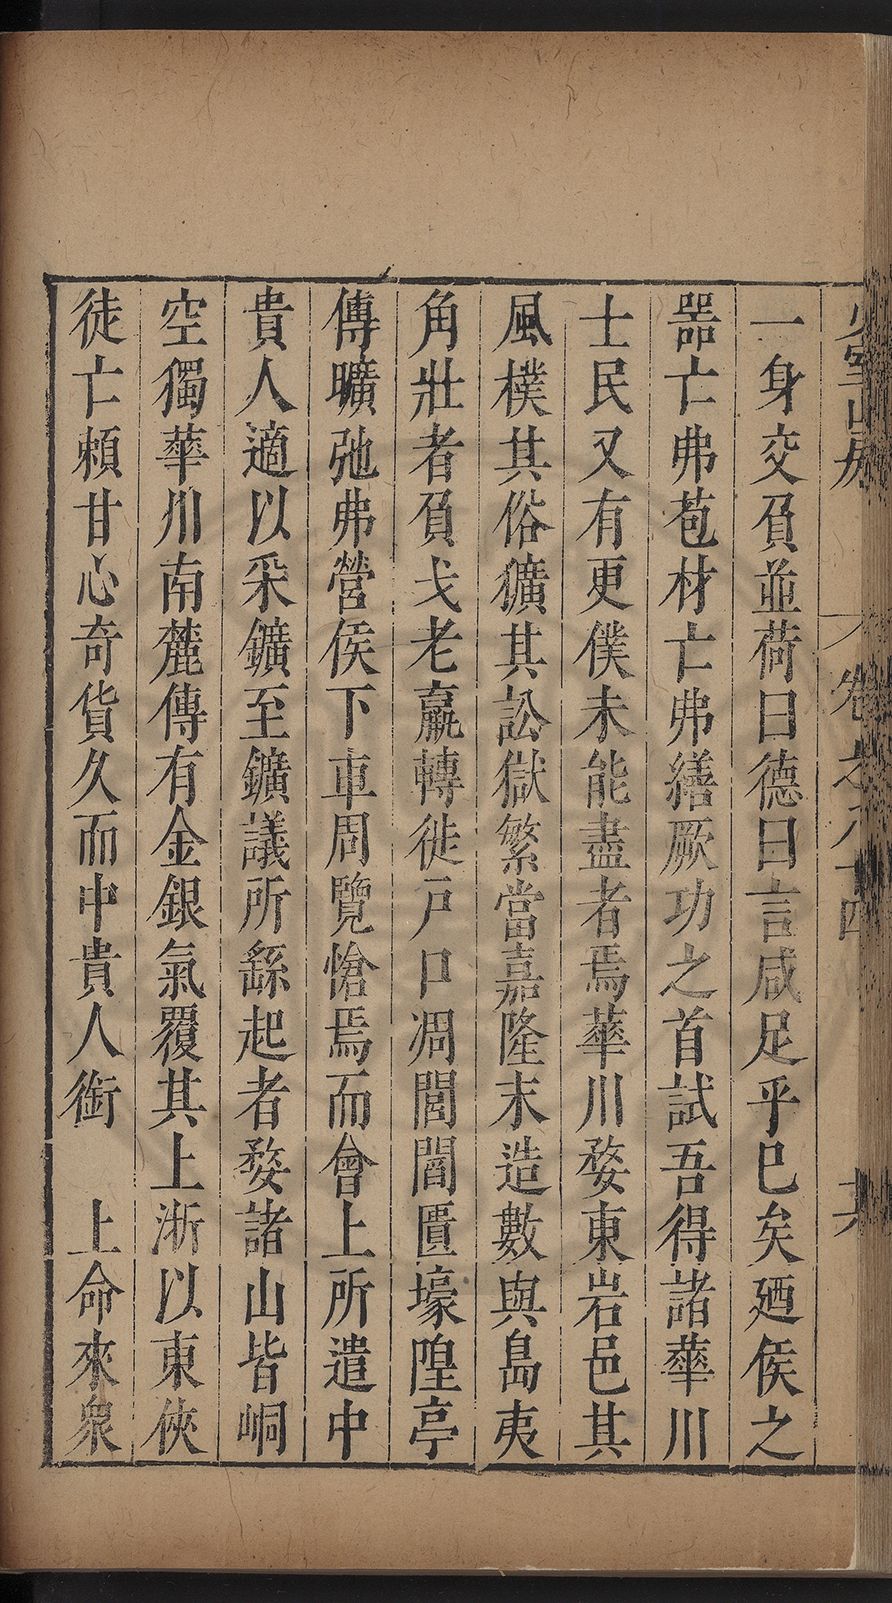 少室山房　卷之八十四
一身交負並荷曰德曰言咸足乎已矣廼侯之
噐亡弗苞材亡弗繕厥功之首試吾得諸華川
士民又有更僕未能盡者焉華川婺東岩邑其
風樸其俗獷其訟獄繁當嘉隆末造數與島夷
角壯者負戈老羸轉徙戶口凋閭閻匱壕隍亭
傳曠弛弗營侯下車周覽愴焉而會上所遣中
貴人適以采鑛至鑛議所繇起者婺諸山皆峒
空獨華川南麓傳有金銀氣覆其上浙以東俠
徒亡賴甘心奇貨久而中貴人銜　上命來衆